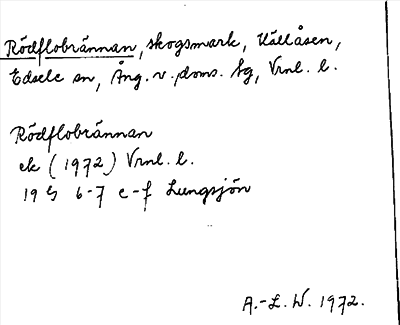 Rödflobrännan, skogsmark, Källåsen,
Edsele sn, Ång. v. doms. tg, Vrnl. l.
Rödflobrännan
ek (1972) Vrnl. l.
19 G 6-7 e-f Lungsjön
A.-L. W. 1972.